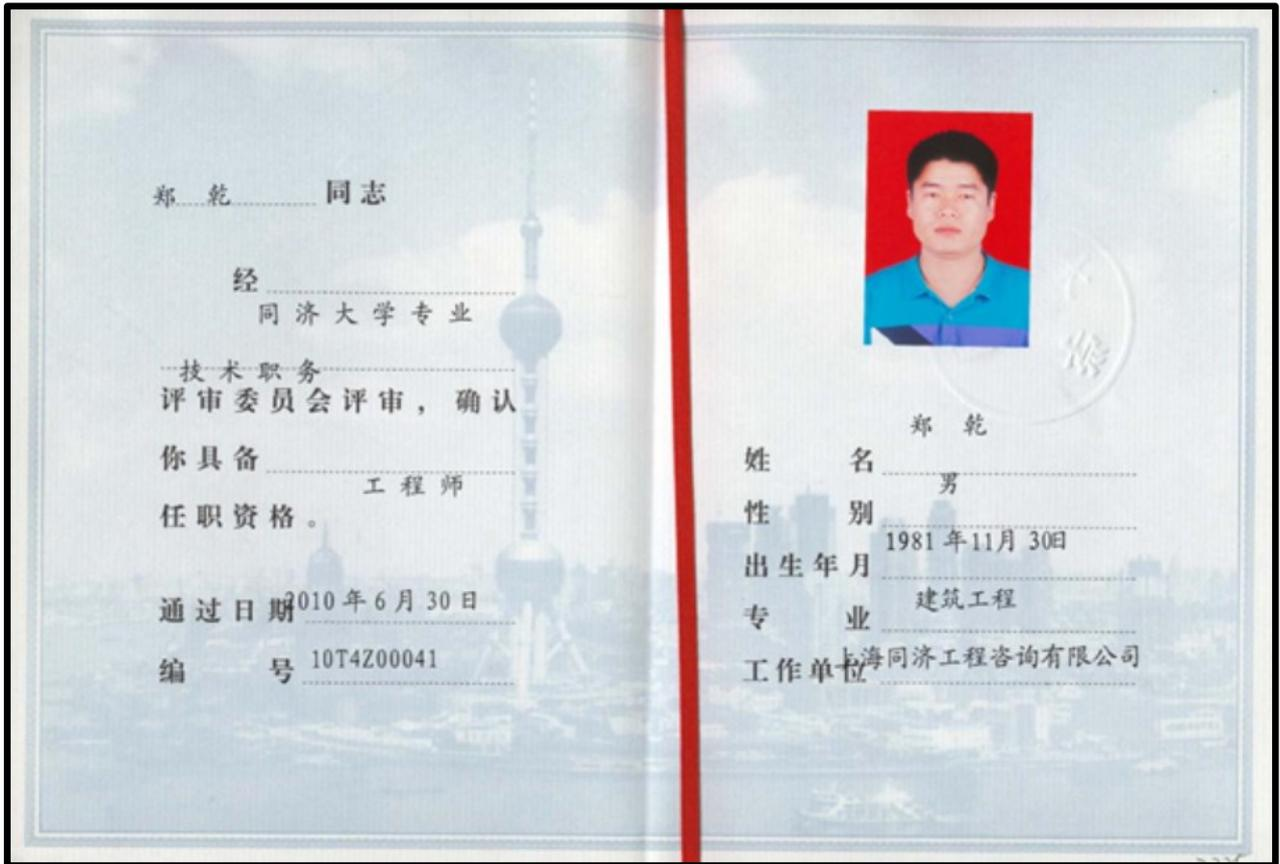 郑 乾 同志
经
同济大学专业
技术职务
评审委员会评审，确认
你具备
工程师
任职资格。
通过日期 2010年6月30日
编 号 10T4Z00041
郑 乾
姓 名
男
性 别
1981年11月30日
出生年月
建筑工程
专 业
上海同济工程咨询有限公司
工作单位